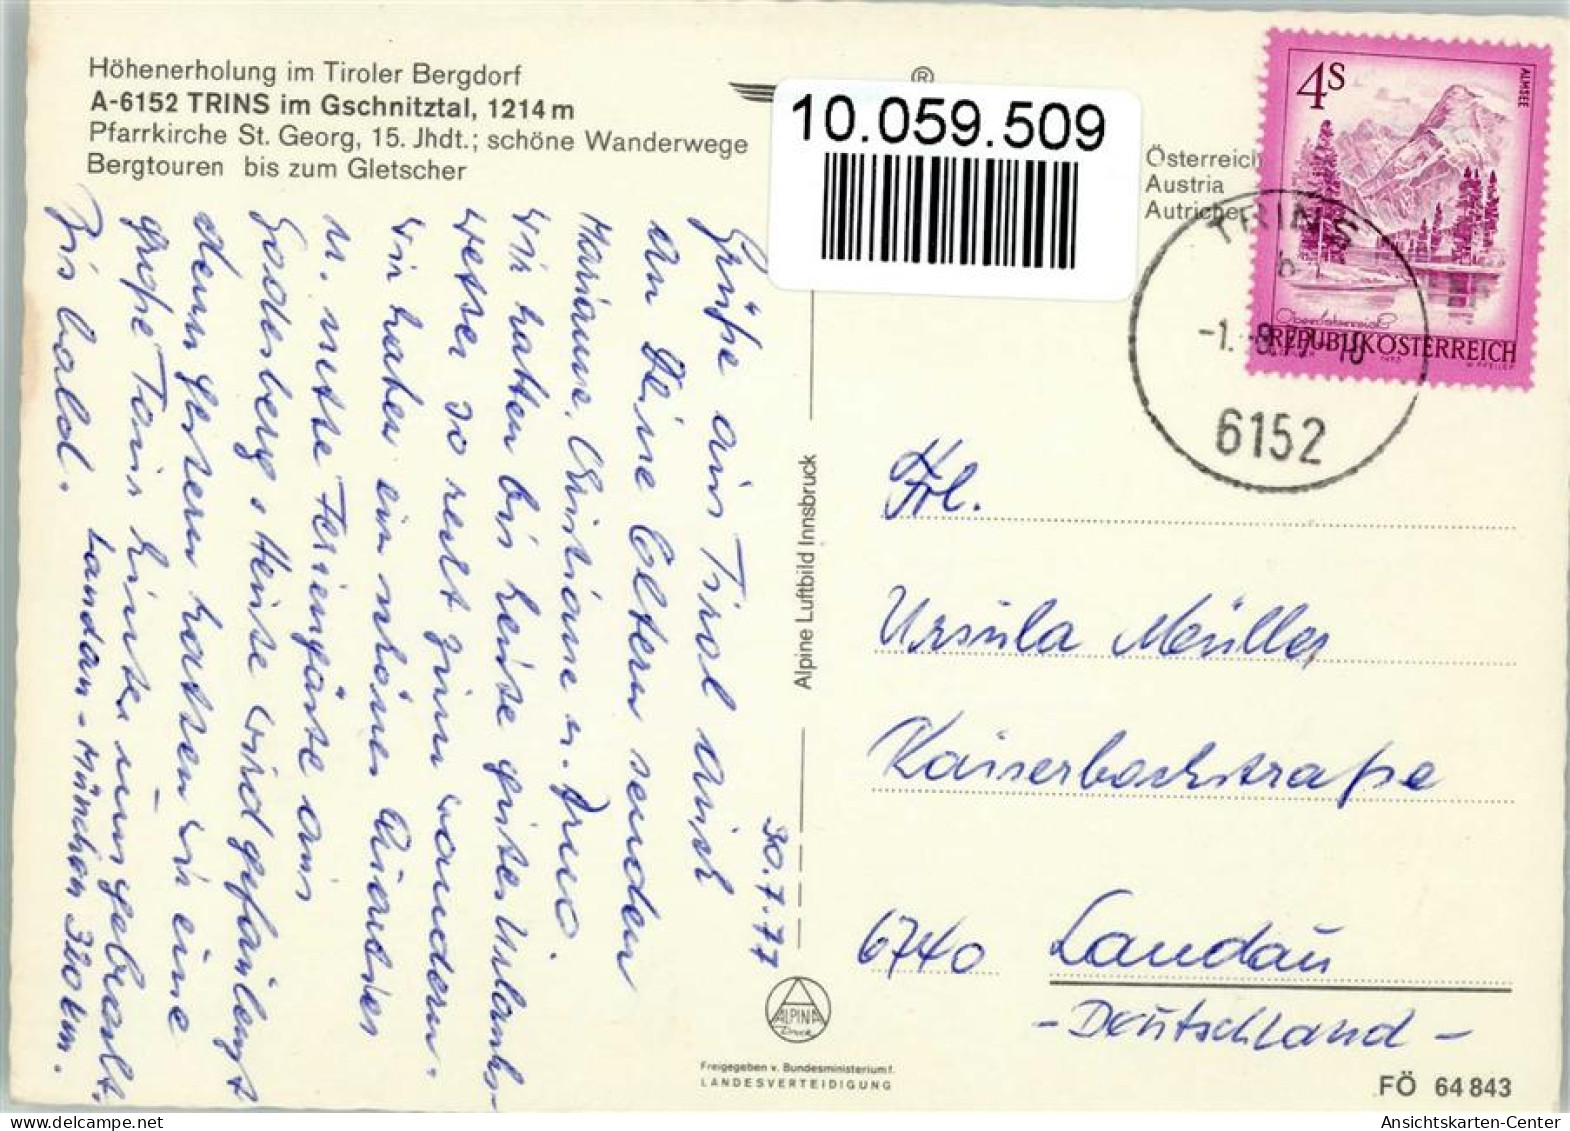 Höhenerholung im Tiroler Bergdorf
A-6152 TRINS im Gschnitztal, 1214 m
Pfarrkirche St. Georg, 15. Jhdt.; schöne Wanderwege
Bergtouren bis zum Gletscher
®
10.059.509
Österreich
Austria
Autriche
4S
ALMSEE
REPUBLIK ÖSTERREICH
TRINS
6152
30.7.77
Grüße aus Tirol auch
an Deine Eltern senden
Marianne, Christiane u. Bruno.
Wir hatten bis heute gutes Urlaubs-
wetter so recht zum wandern.
Wir haben ein schönes Quartier
u. nette Feriengäste aus
Godesberg. Heute wird gefaulenzt
denn gestern hatten wir eine
große Tour hinter uns gebracht.
Bis bald.
Landau - München 320 km.
Alpine Luftbild Innsbruck
Frl.
Ursula Müller
Kaiserbachstraße
6740 Landau
- Deutschland -
ALPINA
Druck
Freigegeben v. Bundesministerium f.
LANDESVERTEIDIGUNG
FÖ 64 843
Ansichtskarten-Center